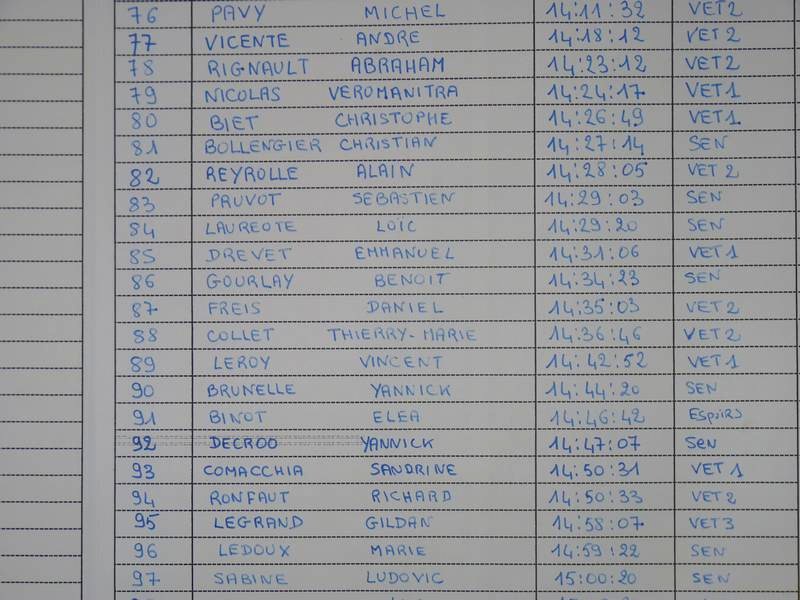 76 PAVY MICHEL 14:11:32 VET 2
77 VICENTE ANDRE 14:18:12 VET 2
78 RIGNAULT ABRAHAM 14:23:12 VET 2
79 NICOLAS VEROMANITRA 14:24:17 VET 1
80 BIET CHRISTOPHE 14:26:49 VET 1
81 BOLLENGIER CHRISTIAN 14:27:14 SEN
82 REYROLLE ALAIN 14:28:05 VET 2
83 PRUVOT SEBASTIEN 14:29:03 SEN
84 LAUREOTE LOÏC 14:29:20 SEN
85 DREVET EMMANUEL 14:31:06 VET 1
86 GOURLAY BENOIT 14:34:23 SEN
87 FREIS DANIEL 14:35:03 VET 2
88 COLLET THIERRY-MARIE 14:36:46 VET 2
89 LEROY VINCENT 14:42:52 VET 1
90 BRUNELLE YANNICK 14:44:20 SEN
91 BINOT ELEA 14:46:42 Espoirs
92 DECROO YANNICK 14:47:07 Sen
93 COMACCHIA SANDRINE 14:50:31 VET 1
94 RONFAUT RICHARD 14:50:33 VET 2
95 LEGRAND GILDAN 14:58:07 VET 3
96 LEDOUX MARIE 14:59:22 SEN
97 SABINE LUDOVIC 15:00:20 SEN